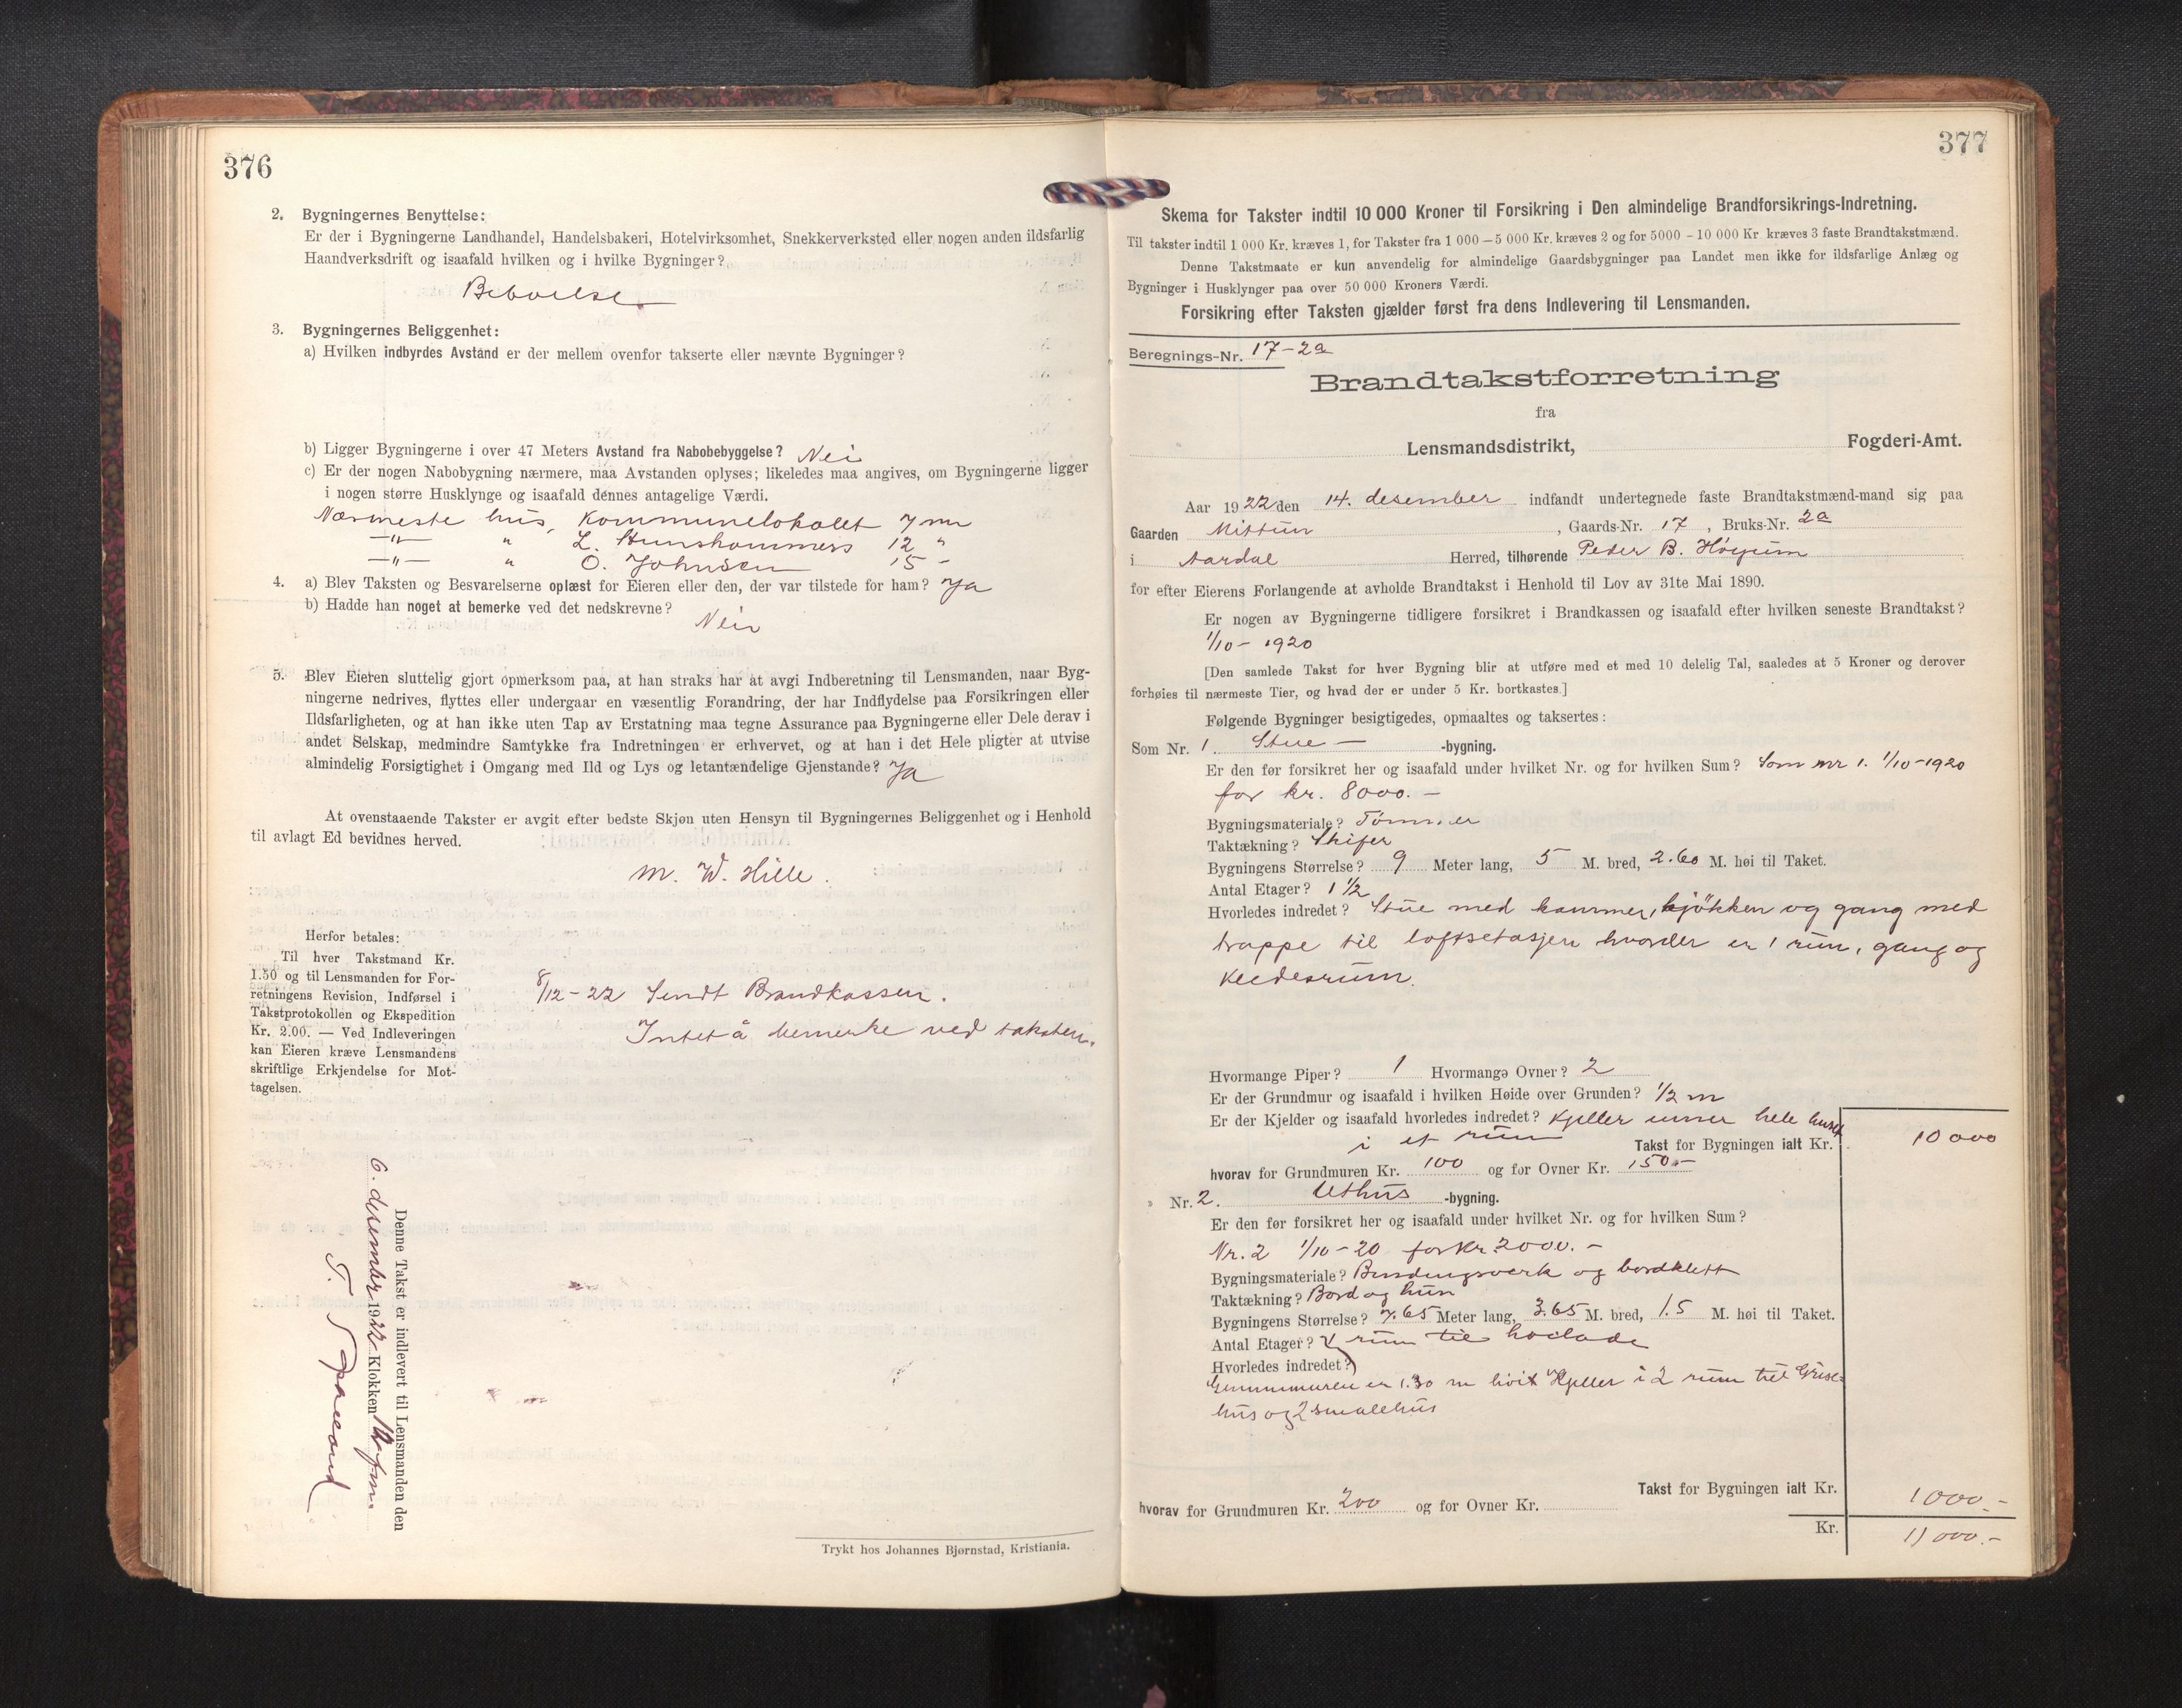 376
2. Bygningernes Benyttelse:
Er der i Bygningerne Landhandel, Handelsbakeri, Hotelvirksomhet, Snekkerverksted eller nogen anden ildsfarlig
Haandverksdrift og isaafald hvilken og i hvilke Bygninger?
Beboelse
3. Bygningernes Beliggenhet:
a) Hvilken indbyrdes Avstand er der mellem ovenfor takserte eller nævnte Bygninger?
b) Ligger Bygningerne i over 47 Meters Avstand fra Nabobebyggelse? Nei
c) Er der nogen Nabobygning nærmere, maa Avstanden oplyses; likeledes maa angives, om Bygningerne ligger
i nogen større Husklynge og isaafald dennes antagelige Værdi.
Nærmeste hus, Kommunelokalet 7 m
—"— " L. Hunshammers 12 "
—"— " O. Johnsen 15 -
4. a) Blev Taksten og Besvarelserne oplæst for Eieren eller den, der var tilstede for ham? Ja
b) Hadde han noget at bemerke ved det nedskrevne?
Nei
5. Blev Eieren sluttelig gjort opmerksom paa, at han straks har at avgi Indberetning til Lensmanden, naar Byg-
ningerne nedrives, flyttes eller undergaar en væsentlig Forandring, der har Indflydelse paa Forsikringen eller
Ildsfarligheten, og at han ikke uten Tap av Erstatning maa tegne Assurance paa Bygningerne eller Dele derav i
andet Selskap, medmindre Samtykke fra Indretningen er erhvervet, og at han i det Hele pligter at utvise
almindelig Forsigtighet i Omgang med Ild og Lys og letantændelige Gjenstande? Ja
At ovenstaaende Takster er avgit efter bedste Skjøn uten Hensyn til Bygningernes Beliggenhet og i Henhold
til avlagt Ed bevidnes herved.
M. W. Hille.
Herfor betales:
Til hver Takstmand Kr.
1.50 og til Lensmanden for For-
retningens Revision, Indførsel i
Takstprotokollen og Ekspedition
Kr. 2.00. — Ved Indleveringen
kan Eieren kræve Lensmandens
skriftlige Erkjendelse for Mot-
tagelsen.
8/12-22 Sendt Brandkassen.
Intet å bemerke ved taksten.
Denne Takst er indlevert til Lensmanden den
6. desember 1922 Klokken 12 fm.
Trykt hos Johannes Bjørnstad, Kristiania.
377
Skema for Takster indtil 10 000 Kroner til Forsikring i Den almindelige Brandforsikrings-Indretning.
Til takster indtil 1 000 Kr. kræves 1, for Takster fra 1 000 — 5 000 Kr. kræves 2 og for 5000 - 10 000 Kr kræves 3 faste Brandtakstmænd.
Denne Takstmaate er kun anvendelig for almindelige Gaardsbygninger paa Landet men ikke for ildsfarlige Anlæg og
Bygninger i Husklynger paa over 50 000 Kroners Værdi.
Forsikring efter Taksten gjælder først fra dens Indlevering til Lensmanden.
Beregnings-Nr. 17-2a
Brandtakstforretning
fra
Lensmandsdistrikt, Fogderi-Amt.
Aar 1922 den 14. desember indfandt undertegnede faste Brandtakstmænd-mand sig paa
Gaarden Mittun, Gaards-Nr. 17, Bruks-Nr. 2a
i Aardal Herred, tilhørende Peder B. Høyum
for efter Eierens Forlangende at avholde Brandtakst i Henhold til Lov av 31te Mai 1890.
Er nogen av Bygningerne tidligere forsikret i Brandkassen og isaafald efter hvilken seneste Brandtakst?
1/10 - 1920
[Den samlede Takst for hver Bygning blir at utføre med et med 10 delelig Tal, saaledes at 5 Kroner og derover
forhøies til nærmeste Tier, og hvad der er under 5 Kr. bortkastes.]
Følgende Bygninger besigtigedes, opmaaltes og taksertes:
Som Nr. 1. Stue — -bygning.
Er den før forsikret her og isaafald under hvilket Nr. og for hvilken Sum? Som nr 1. 1/10-1920
for kr. 8000.-
Bygningsmateriale? Tømmer
Taktækning? Skifer
Bygningens Størrelse? 9 Meter lang, 5 M. bred, 2.60 M. høi til Taket.
Antal Etager? 1 1/2
Hvorledes indredet? Stue med kammer, kjökken og gang med
trappe til loftsetasjen hvorder er 1 rum, gang og
kledesrum.
Hvormange Piper? 1 Hvormange Ovner? 2
Er der Grundmur og isaafald i hvilken Høide over Grunden? 1/2 m
Er der Kjelder og isaafald hvorledes indredet? Kjeller unner hele huset
i et rum Takst for Bygningen ialt Kr. 10 000
hvorav for Grundmuren Kr. 100 og for Ovner Kr. 150.-
» Nr. 2. Uthus -bygning.
Er den før forsikret her og isaafald under hvilket Nr. og for hvilken Sum?
Nr. 2 1/10-20 for kr. 2000.-
Bygningsmateriale? Bindingsverk og bordklett
Taktækning? Bord og hun
Bygningens Størrelse? 7.65 Meter lang, 3.65 M. bred, 1.5 M. høi til Taket.
Antal Etager? rum til hølade
Hvorledes indredet?
Grunnmuren er 1.30 m høit Kjeller i 2 rum til Grise-
hus og 2 smalehus
Takst for Bygningen ialt Kr. 1000.-
hvorav for Grundmuren Kr. 200 og for Ovner Kr.
Kr. 11 000.-